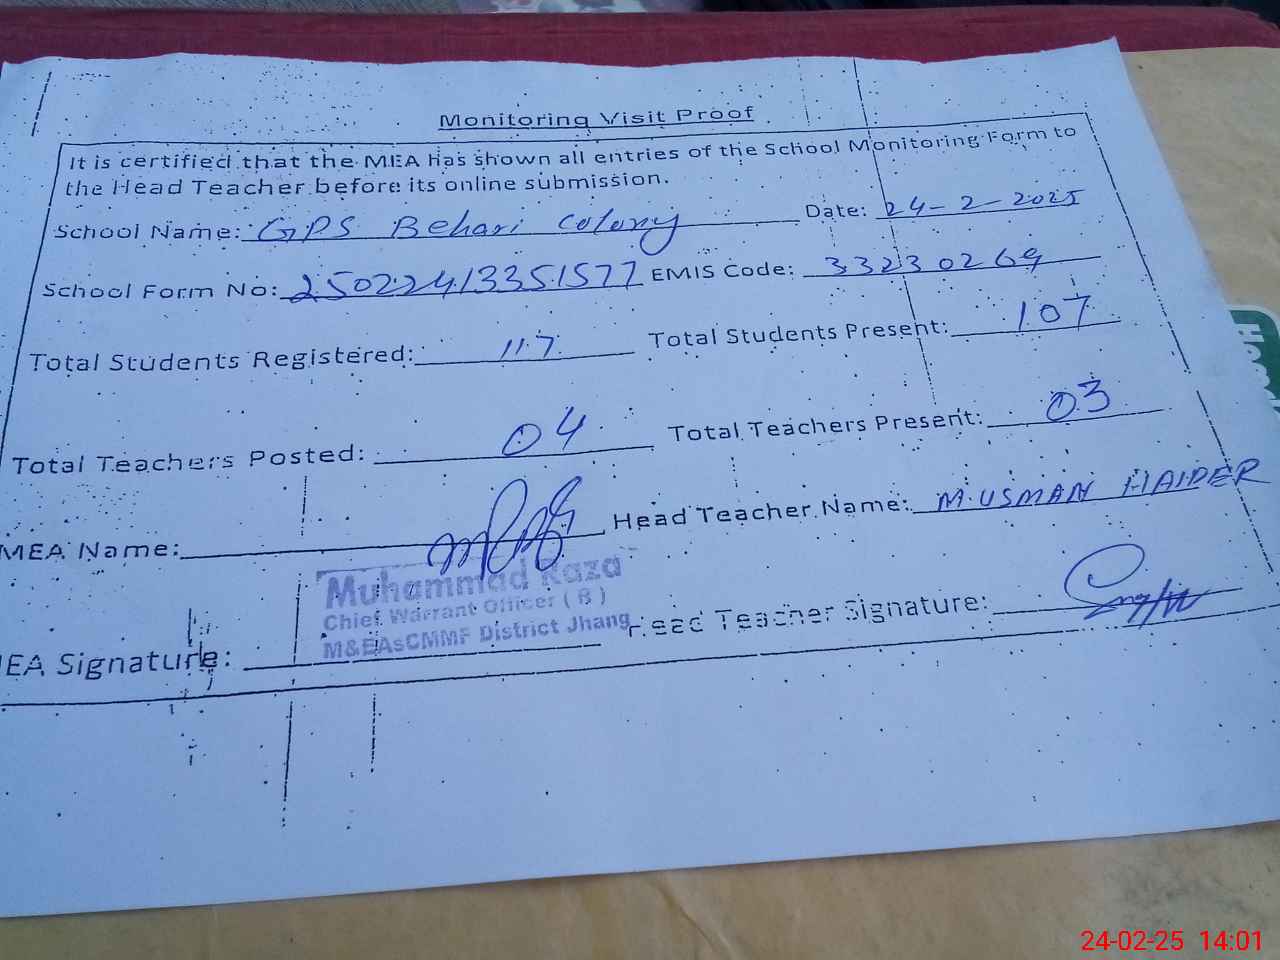 Monitoring Visit Proof
It is certified that the MEA has shown all entries of the School Monitoring Form to
the Head Teacher before its online submission.
School Name: GPS Behari Colony Date: 24-2-2025
School Form No: 25022413351577 EMIS Code: 33230269
Total Students Registered: 117 Total Students Present: 107
Total Teachers Posted: 04 Total Teachers Present: 03
MEA Name: Head Teacher Name: M. USMAN HAIDER
Muhammad Raza
Chief Warrant Officer ( B )
M&EAsCMMF District Jhang
EA Signature: Head Teacher Signature:
24-02-25 14:01